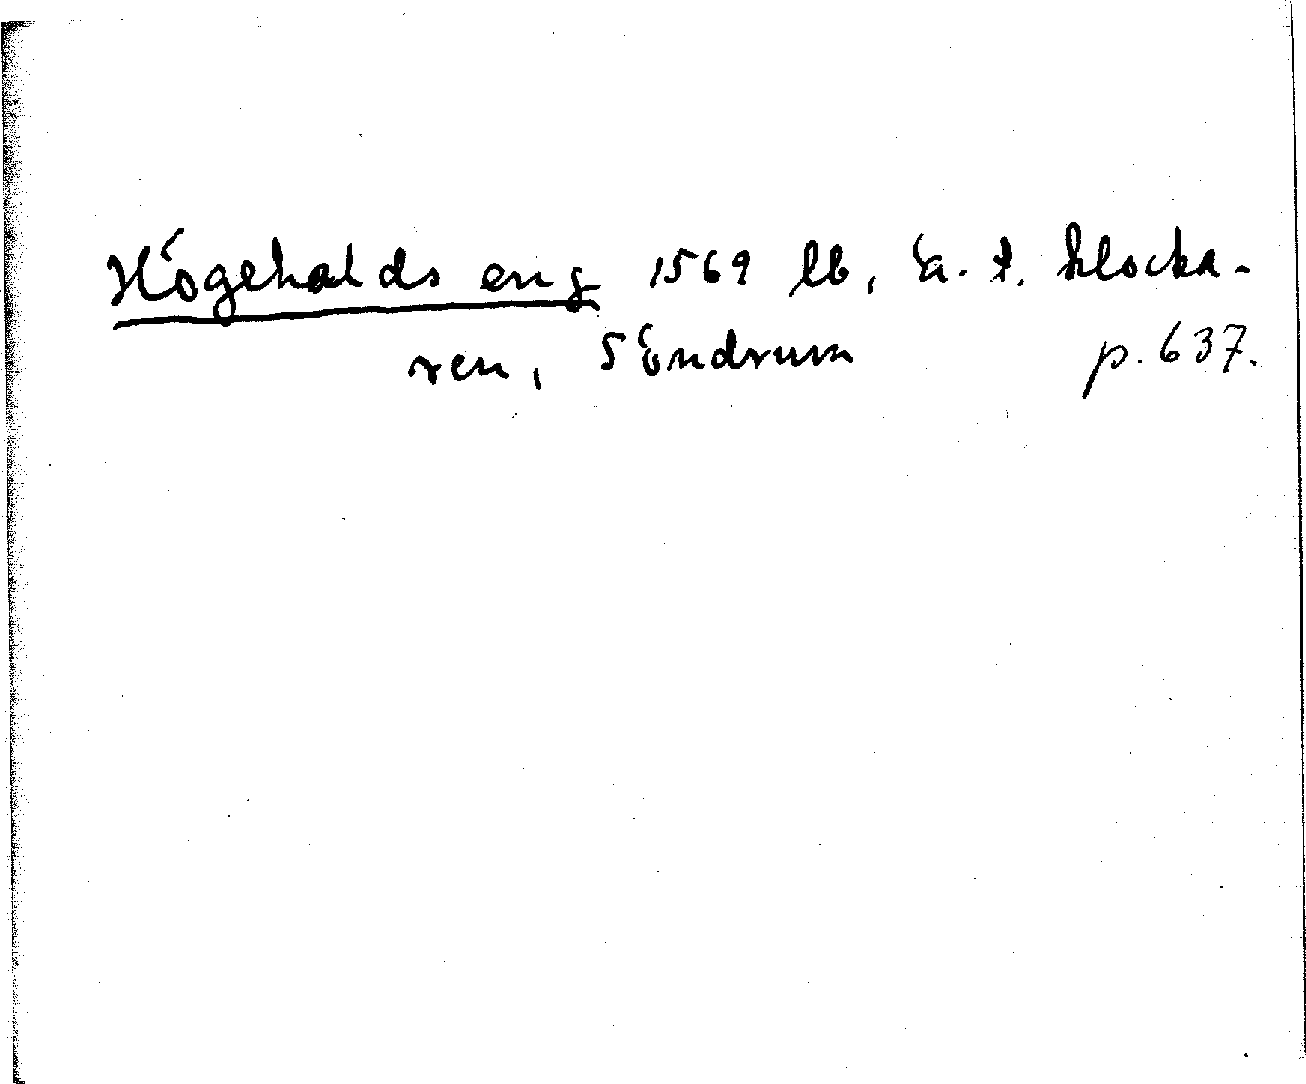 Högehalds eng 1569 lb, ä. t. klocka-
ren, Söndrum p. 637.